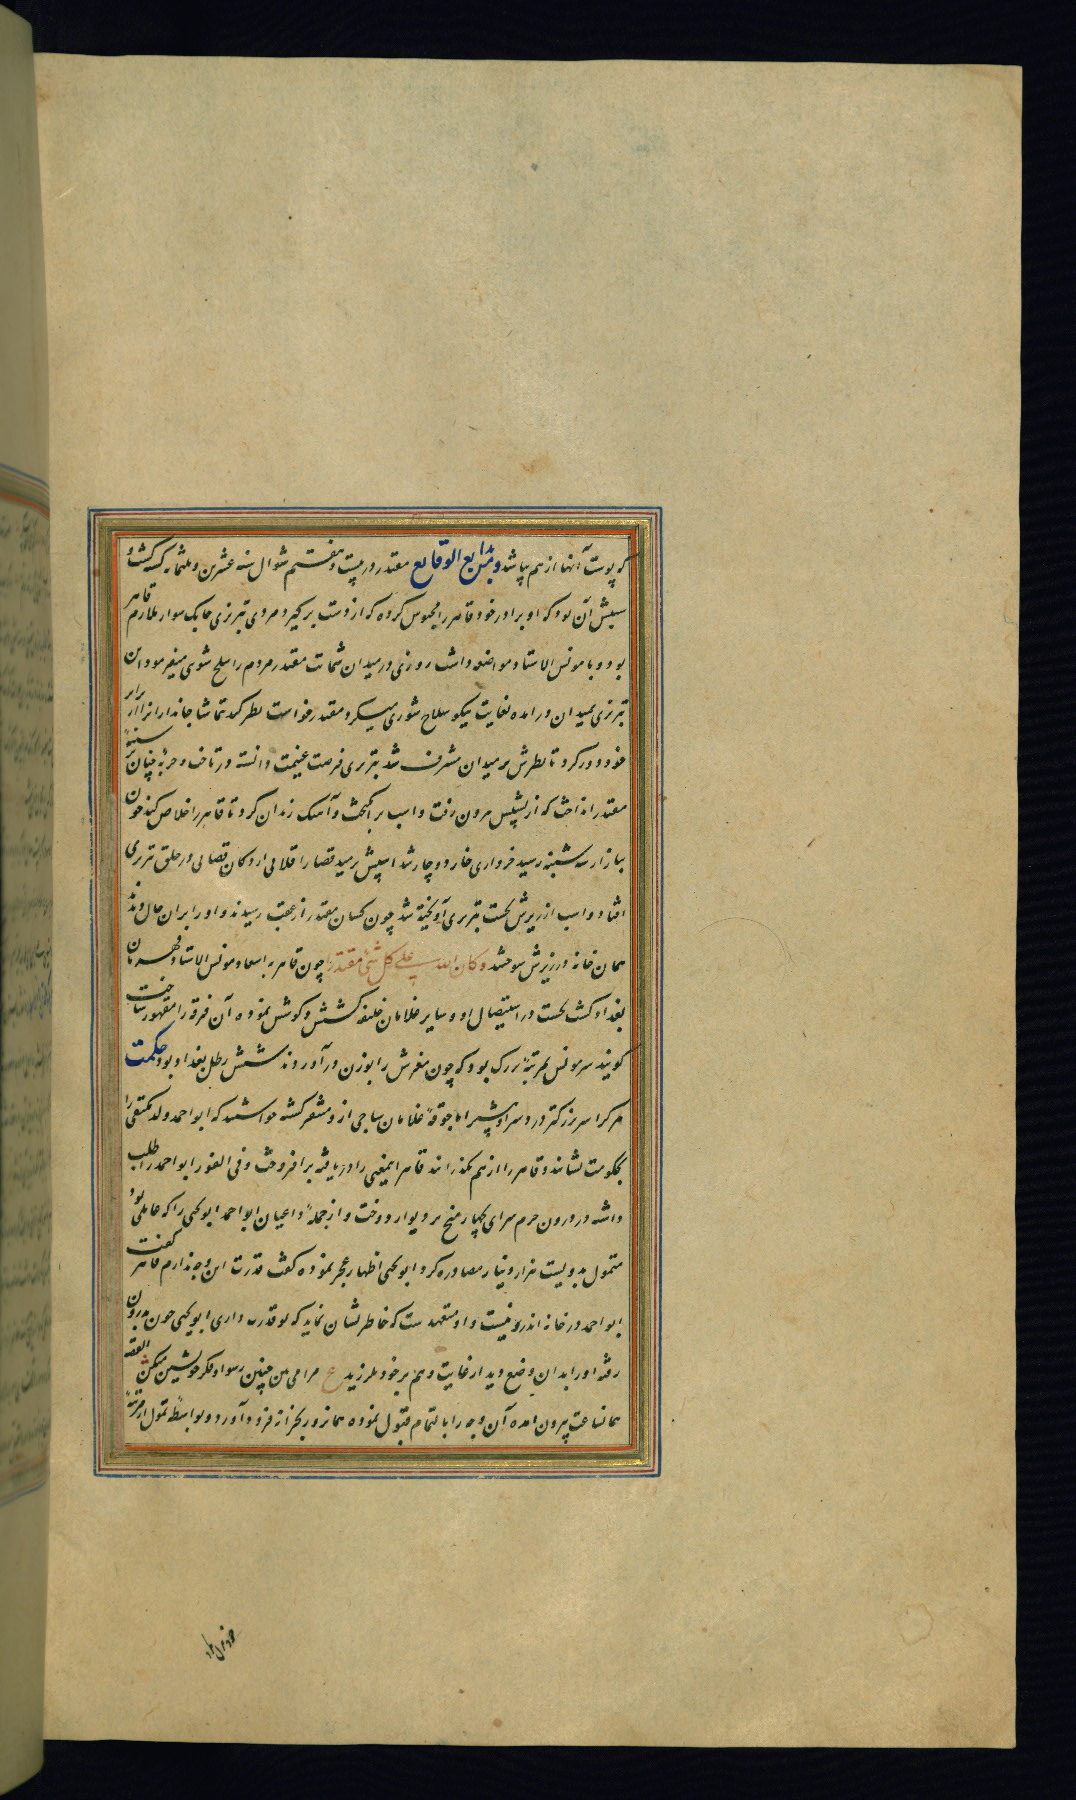 که پوست آنها از هم بپاشد و من بدایع الوقایع مقتدر در بیست و هفتم شوال سنه عشرین و ثلثمایه کشته گشت و
سببش آن بود که او برادر خود قاهر را محبوس کرده که از دست بر گیرد مردی تبریزی چابک سوار ملازم قاهر
بود و با مونس الاستاد مواضعه داشت روزی در میدان مقتدر مردم را سلح شوری میفرمود این
تبریزی بمیدان در امده بغایت نیکو سلاح شوری میکرد مقتدر خواست تماشا جانداران را از برابر
خود دور کرد تا نظرش بر میدان مشرف شد تبریزی فرصت غنیمت دانسته در تاخت و حربه چنان بر سینه
مقتدر انداخت که از پشتش بیرون رفت و اسب بر انگیخت و آهنک زندان کرد تا قاهر را خلاص کند چون
ببازار سه شنبه رسید خرواری خار دوچار شد اسپش برمید قضا را قلابی از دکان قصابی در حلق تبریزی
افتاد و اسب از زیرش بجست تبریزی آویخته شد چون کسان مقتدر از عقب رسیدند و او را بر ان حال دیدند
همان خار در زیرش سوختند و کان الله علی کل شئ مقتدرا چون قاهر به استعداد مونس الاستاد قهرمان
بغداد گشت در استیصال او و سایر غلامان خلیفه کشش و کوشش نموده آن فرقه را مقهور ساخت
کویند سر مونس بمرتبه بزرک بود که چون مغزش را بوزن در آوردند شش رطل بغداد بود حکمت
هر کرا سر بزرکتر درد سر او بیشتر اما جوقه غلامان ساجی از و متنفر کشته خواستند که ابو احمد ولد مکتفی را
بحکومت نشانند و قاهر را از هم بگذرانند قاهر اینمعنی را دریافته بر افروخت و فی الفور ابو احمد را طلب
داشته در درون حرم سرای بچهار میخ بر دیوار دوخت و از جمله داعیان ابو احمد ابو یحیی را که عاملی بود
متمول بدویست هزار دینار مصادره کرد ابو یحیی اظهار عجز نموده گفت قدرت این وجه ندارم قاهر گفت
ابو احمد در خانه اندرونیست و او متعهد ست که خاطر نشان نماید که تو قدرت داری ابو یحیی چون بدرون
رفته او را بدان وضع دید از غایت وهم بر خود بلرزید ع مرا می بین چنین رسوا و فکر خویشتن میکن القصه
همانساعت بیرون امده آن وجه را بالتمام قبول نموده همانروز بخزانه فرود آورد و بواسطه تمول از مرتبه